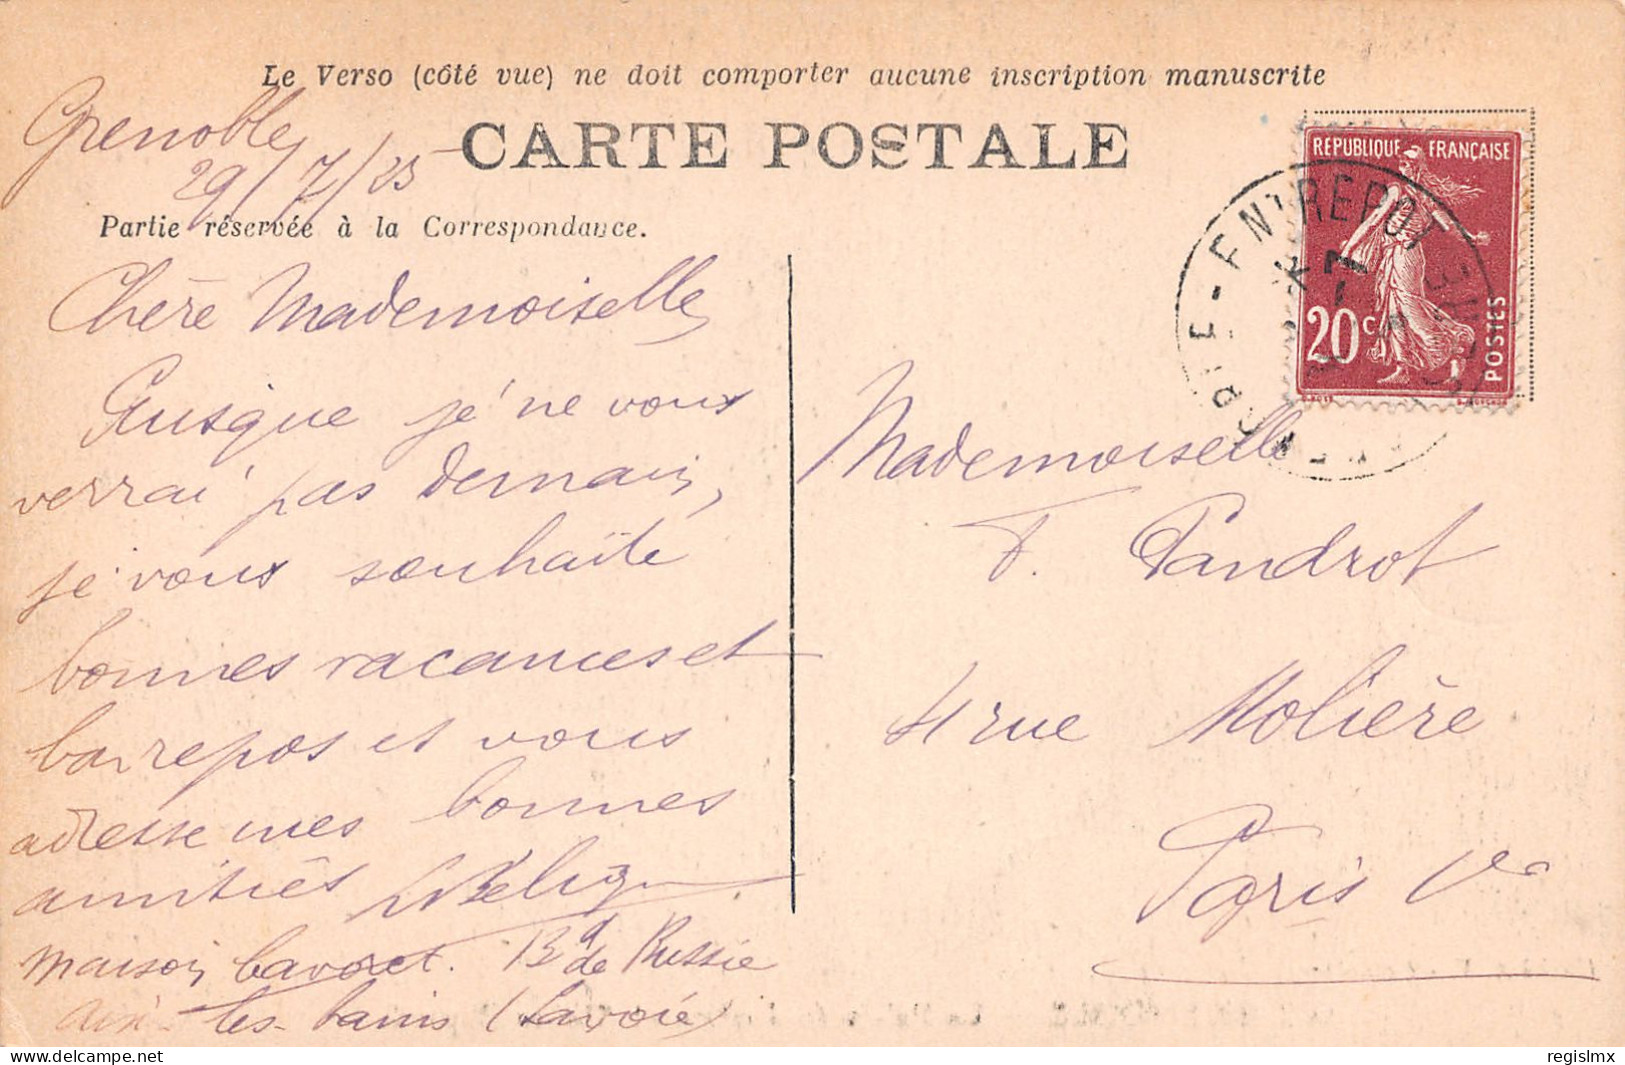 Le Verso (côté vue) ne doit comporter aucune inscription manuscrite
CARTE POSTALE
Grenoble
29/7/25
Partie réservée à la Correspondance.
Chère Mademoiselle
Puisque je ne vous
verrai pas demain,
je vous souhaite
bonnes vacances et
bon repos et vous
adresse mes bonnes
amitiés
Maison Bd de Russie
Aix-les-bains (Savoie)
REPUBLIQUE FRANÇAISE
20c
POSTES
ENTREPOT
Mademoiselle
F. Pandrot
4 rue Molière
Paris
www.delcampe.net
regislmx